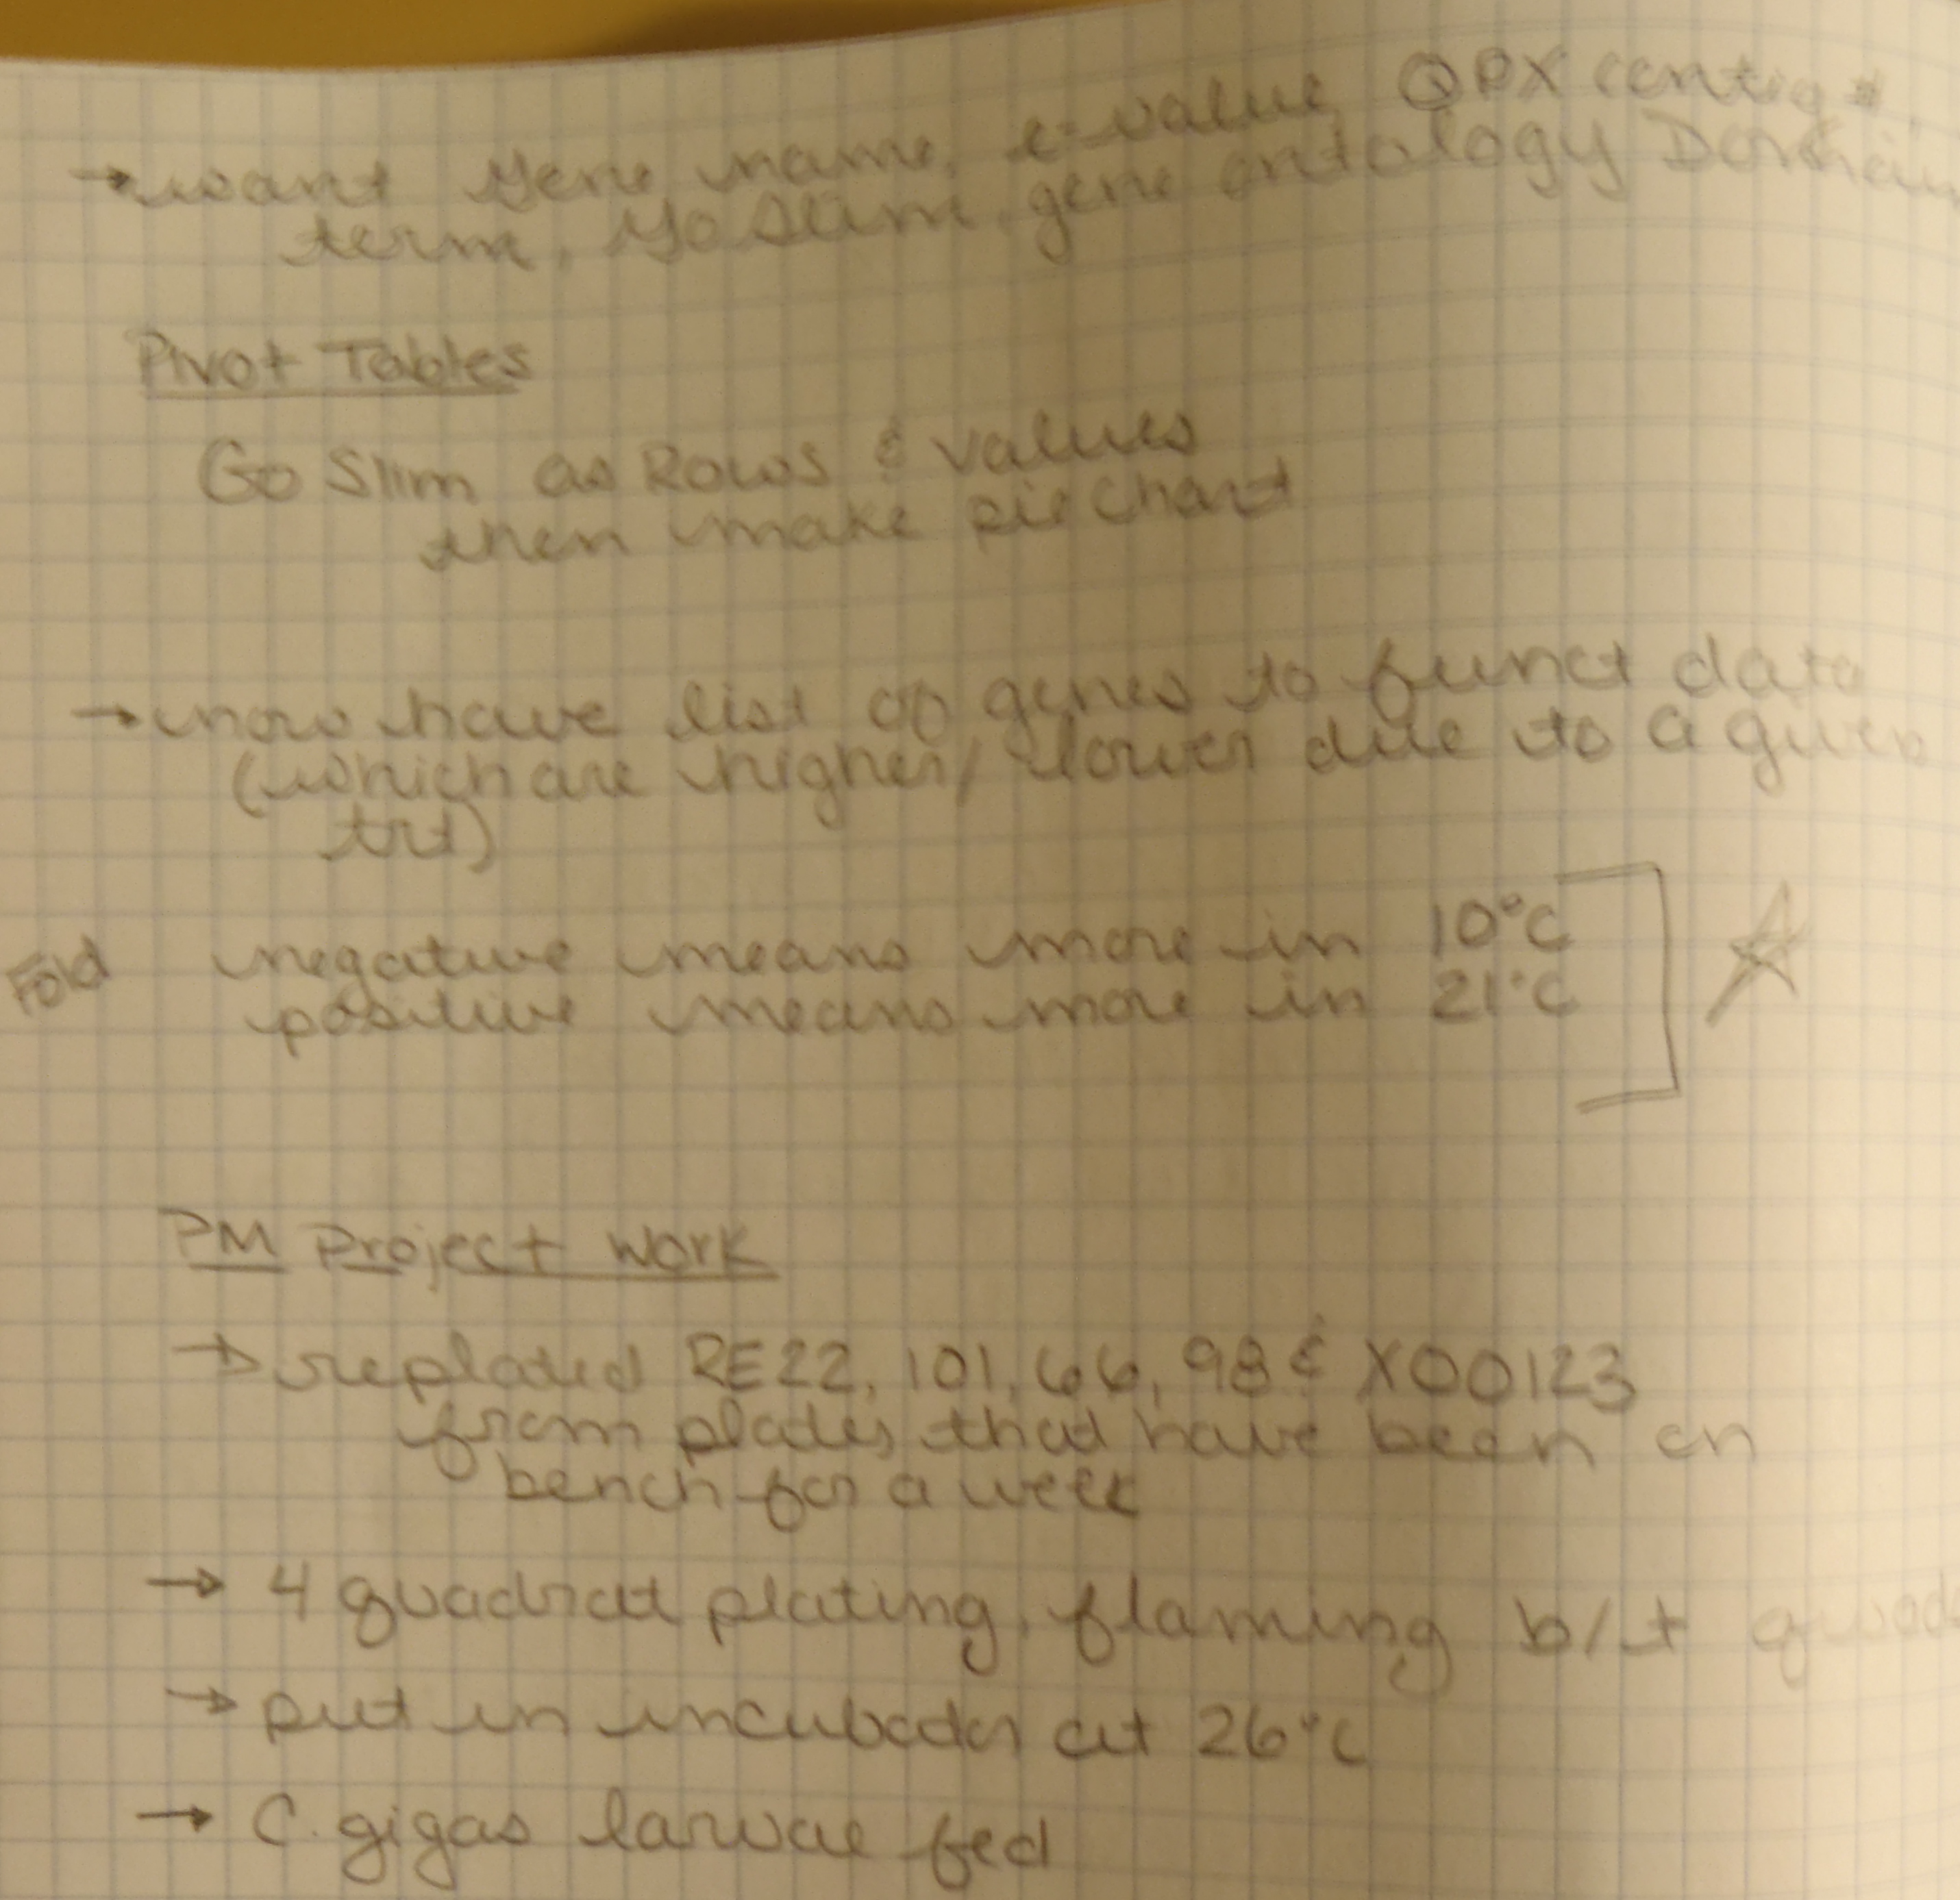 → want gene name, e-value, QPX contig #,
term, GO Slim, gene ontology Domain
Pivot Tables
Go Slim as Rows & values
then make pie chart
→ now have list of genes to funct data
(which are higher/lower due to a given
trt)
Fold negative means more in 10°C
positive means more in 21°C
PM Project Work
→ replated RE22, 101, 66, 98 & X00123
from plates that have been on
bench for a week
→ 4 quadrat plating, flaming b/t quad
→ put in incubator at 26°C
→ C. gigas larvae fed